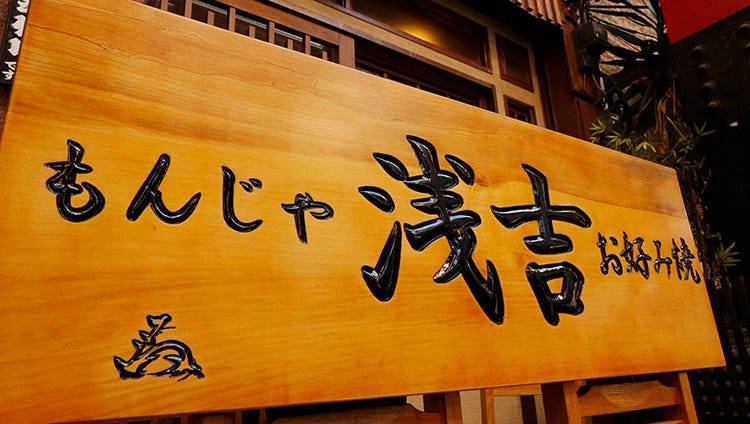 もんじゃ 浅吉 お好み焼